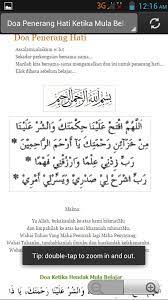 3G 12:16
Doa Penerang Hati Ketika Mula Bel
Doa Penerang Hati
Assalamualaikum w.b.t
Sekadar perkongsian bersama-sama...
Marilah kita bersama-sama mengamalkan doa ini untuk penerang hati...
Elok dibaca sebelum belajar...
بسم الله الرحمن الرحيم
اَللَّهُمَّ افْتَحْ عَلَيْنَا حِكْمَتَكَ وَانْشُرْ عَلَيْنَا
مِنْ خَزَائِنِ رَحْمَتِكَ يَا أَرْحَمَ الرَّاحِمِيْنَ *
رَبِّ زِدْنِيْ عِلْمًا وَارْزُقْنِيْ فَهْمًا *
رَبِّ اشْرَحْ لِيْ صَدْرِيْ وَيَسِّرْ لِيْ أَمْرِيْ *
Makna:
Ya Allah, bukakanlah ke atas kami hikmatMu
dan limpahilah ke atas kami khazanah rahmatMu,
Wahai Tuhan Yang Maha Pemurah lagi Maha Penyayang.
Tip: double-tap to zoom in and out.
Doa Ketika Hendak Mula Belajar